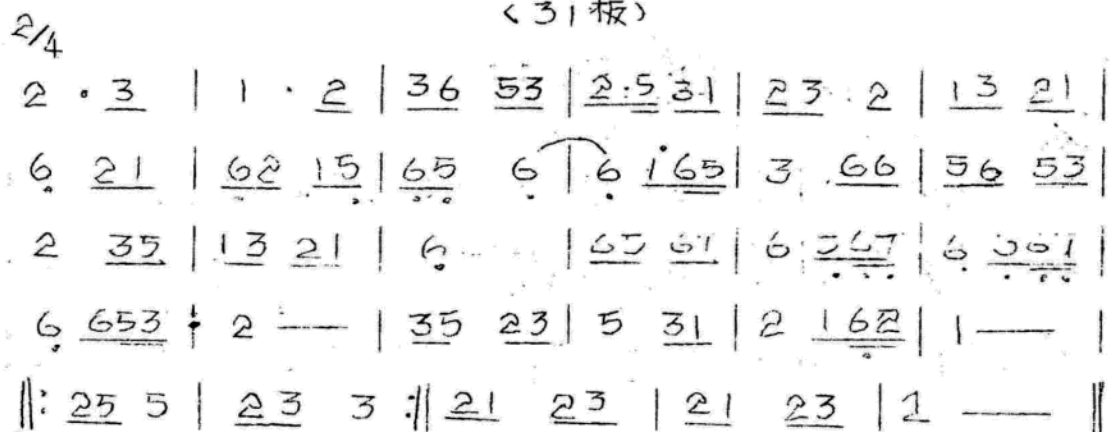 2/4
<31板>
2 · 3 | 1 · 2 | 36 53 | 2·5 31 | 23 2 | 13 21 |
6 21 | 62 15 | 65 6 | 6 165 | 3 66 | 56 53 |
2 35 | 13 21 | 6 | 65 61 | 6 567 | 6 561 |
6 653 | 2 — | 35 23 | 5 31 | 2 162 | 1 — |
‖: 25 5 | 23 3 :‖ 21 23 | 21 23 | 1 — ‖